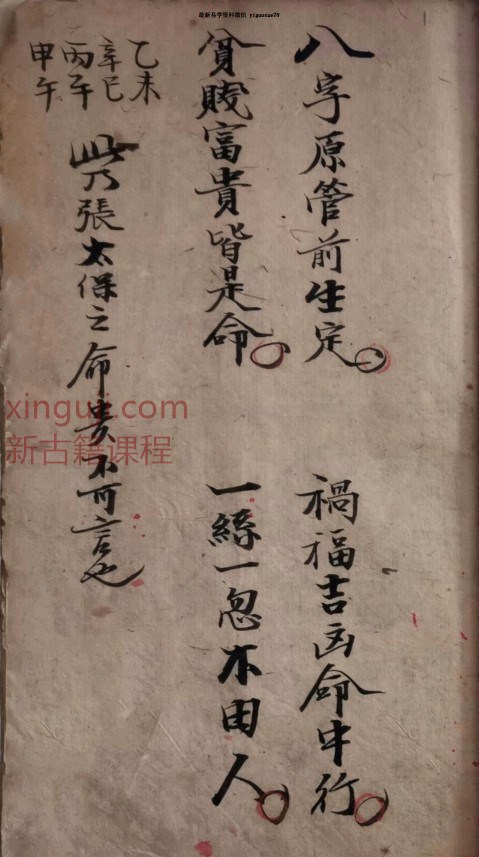 最新易学资料微信 yiguoxue78
八字原管前生定 禍福吉凶命中行
貧賤富貴皆是命 一絲一忽不由人
乙未
辛巳
丙午
甲午
此乃張太保之命貴不可言也
xinguji.com
新古籍课程